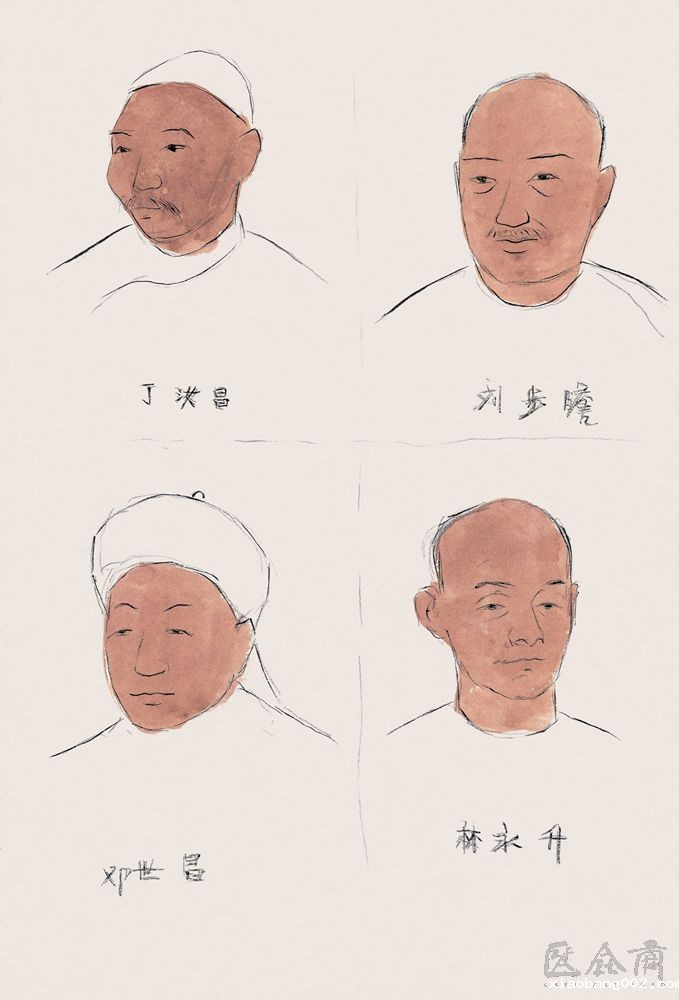 丁汝昌
刘步蟾
邓世昌
林永升
xiaobang002.com